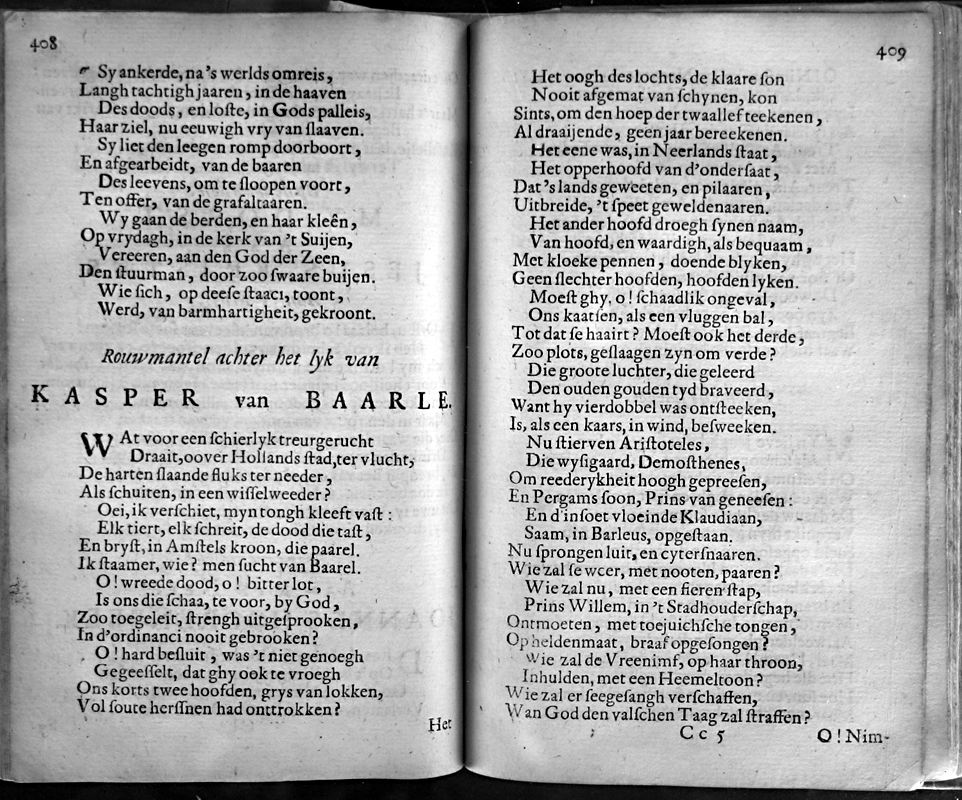 408
Sy ankerde, na's werlds omreis,
Langh tachtigh jaaren, in de haaven
Des doods, en loste, in Gods palleis,
Haar ziel, nu eeuwigh vry van slaaven.
Sy liet den leegen romp doorboort,
En afgearbeidt, van de baaren
Des leevens, om te sloopen voort,
Ten offer, van de grafaltaaren.
Wy gaan de berden, en haar kleên,
Op vrydagh, in de kerk van 't Suijen,
Vereeren, aan den God der Zeen,
Den stuurman, door zoo swaare buijen.
Wie sich, op deese staaci, toont,
Werd, van barmhartigheit, gekroont.
Rouwmantel achter het lyk van
KASPER van BAARLE.
WAt voor een schierlyk treurgerucht
Draait, oover Hollands stad, ter vlucht,
De harten slaande fluks ter needer,
Als schuiten, in een wisselweeder?
Oei, ik verschiet, myn tongh kleeft vast:
Elk tiert, elk schreit, de dood die tast,
En bryst, in Amstels kroon, die paarel.
Ik staamer, wie? men sucht van Baarel.
O! wreede dood, o! bitter lot,
Is ons die schaa, te voor, by God,
Zoo toegeleit, strengh uitgesprooken,
In d'ordinanci nooit gebrooken?
O! hard besluit, was 't niet genoegh
Gegeesselt, dat ghy ook te vroegh
Ons korts twee hoofden, grys van lokken,
Vol soute herssnen had onttrokken?
Het
409
Het oogh des lochts, de klaare son
Nooit afgemat van schynen, kon
Sints, om den hoep der twaallef teekenen,
Al draaijende, geen jaar bereekenen.
Het eene was, in Neerlands staat,
Het opperhoofd van d'ondersaat,
Dat 's lands geweeten, en pilaaren,
Uitbreide, 't speet geweldenaaren.
Het ander hoofd droegh synen naam,
Van hoofd, en waardigh, als bequaam,
Met kloeke pennen, doende blyken,
Geen slechter hoofden, hoofden lyken.
Moest ghy, o! schaadlik ongeval,
Ons kaatsen, als een vluggen bal,
Tot dat se haairt? Moest ook het derde,
Zoo plots, geslaagen zyn om verde?
Die groote luchter, die geleerd
Den ouden gouden tyd braveerd,
Want hy vierdobbel was ontsteeken,
Is, als een kaars, in wind, besweeken.
Nu stierven Aristoteles,
Die wysigaard, Demosthenes,
Om reederykheit hoogh gepreesen,
En Pergams soon, Prins van geneesen:
En d'insoet vloeinde Klaudiaan,
Saam, in Barleus, opgestaan.
Nu sprongen luit, en cytersnaaren.
Wie zal se weer, met nooten, paaren?
Wie zal nu, met een fieren stap,
Prins Willem, in 't Stadhouderschap,
Ontmoeten, met toejuichsche tongen,
Op heldenmaat, braaf opgesongen?
Wie zal de Vreenimf, op haar throon,
Inhulden, met een Heemeltoon?
Wie zal er seegesangh verschaffen,
Wan God den valschen Taag zal straffen?
Cc 5
O! Nim-